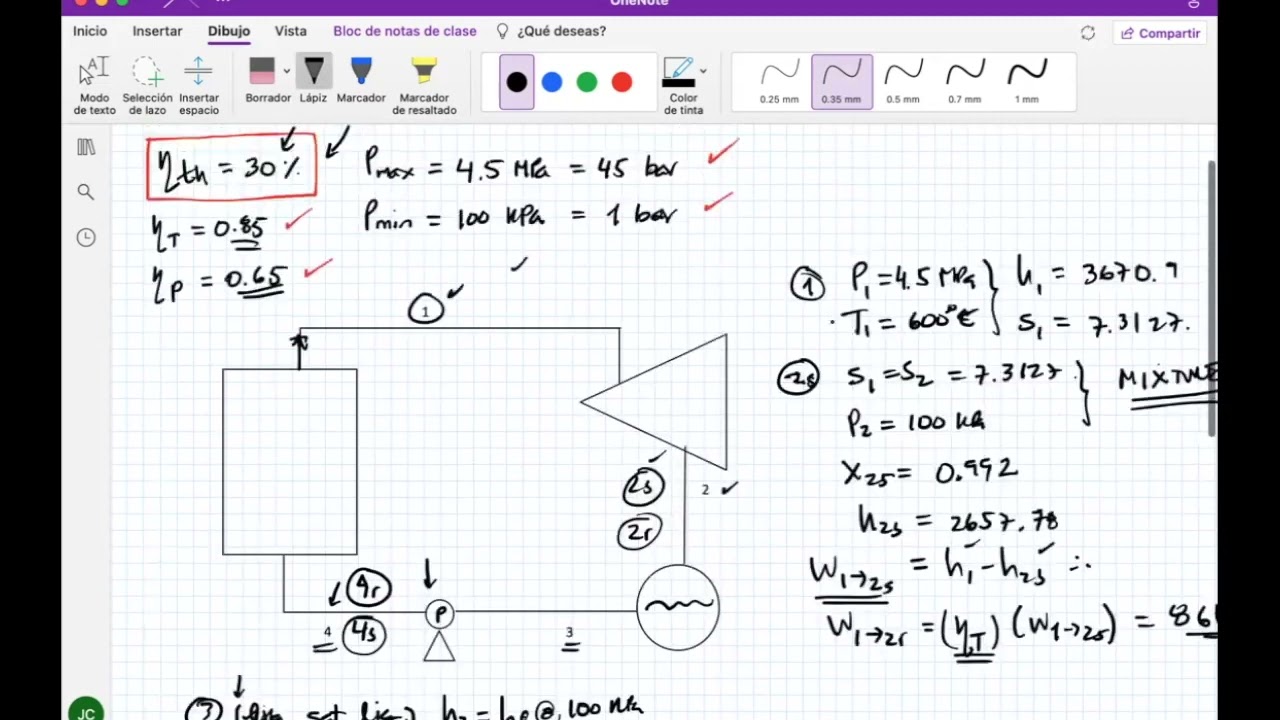 OneNote
Inicio Insertar Dibujo Vista Bloc de notas de clase ¿Qué deseas? Compartir
Modo de texto
Selección de lazo
Insertar espacio
Borrador
Lápiz
Marcador
Marcador de resaltado
Color de tinta
0.25 mm 0.35 mm 0.5 mm 0.7 mm 1 mm
ηth = 30 %
Pmax = 4.5 MPa = 45 bar
ηT = 0.85
Pmin = 100 kPa = 1 bar
ηP = 0.65
1
① P1 = 4.5 MPa } h1 = 3670.9
T1 = 600°C } s1 = 7.3127.
2s s1 = s2 = 7.3127 } MIXTURE
P2 = 100 kPa
x2s = 0.992
h2s = 2657.78
W1→2s = h1 - h2s ∴
W1→2r = (ηT) (W1→2s) = 86
2s
2
2r
4r
P
4
4s
3
JC